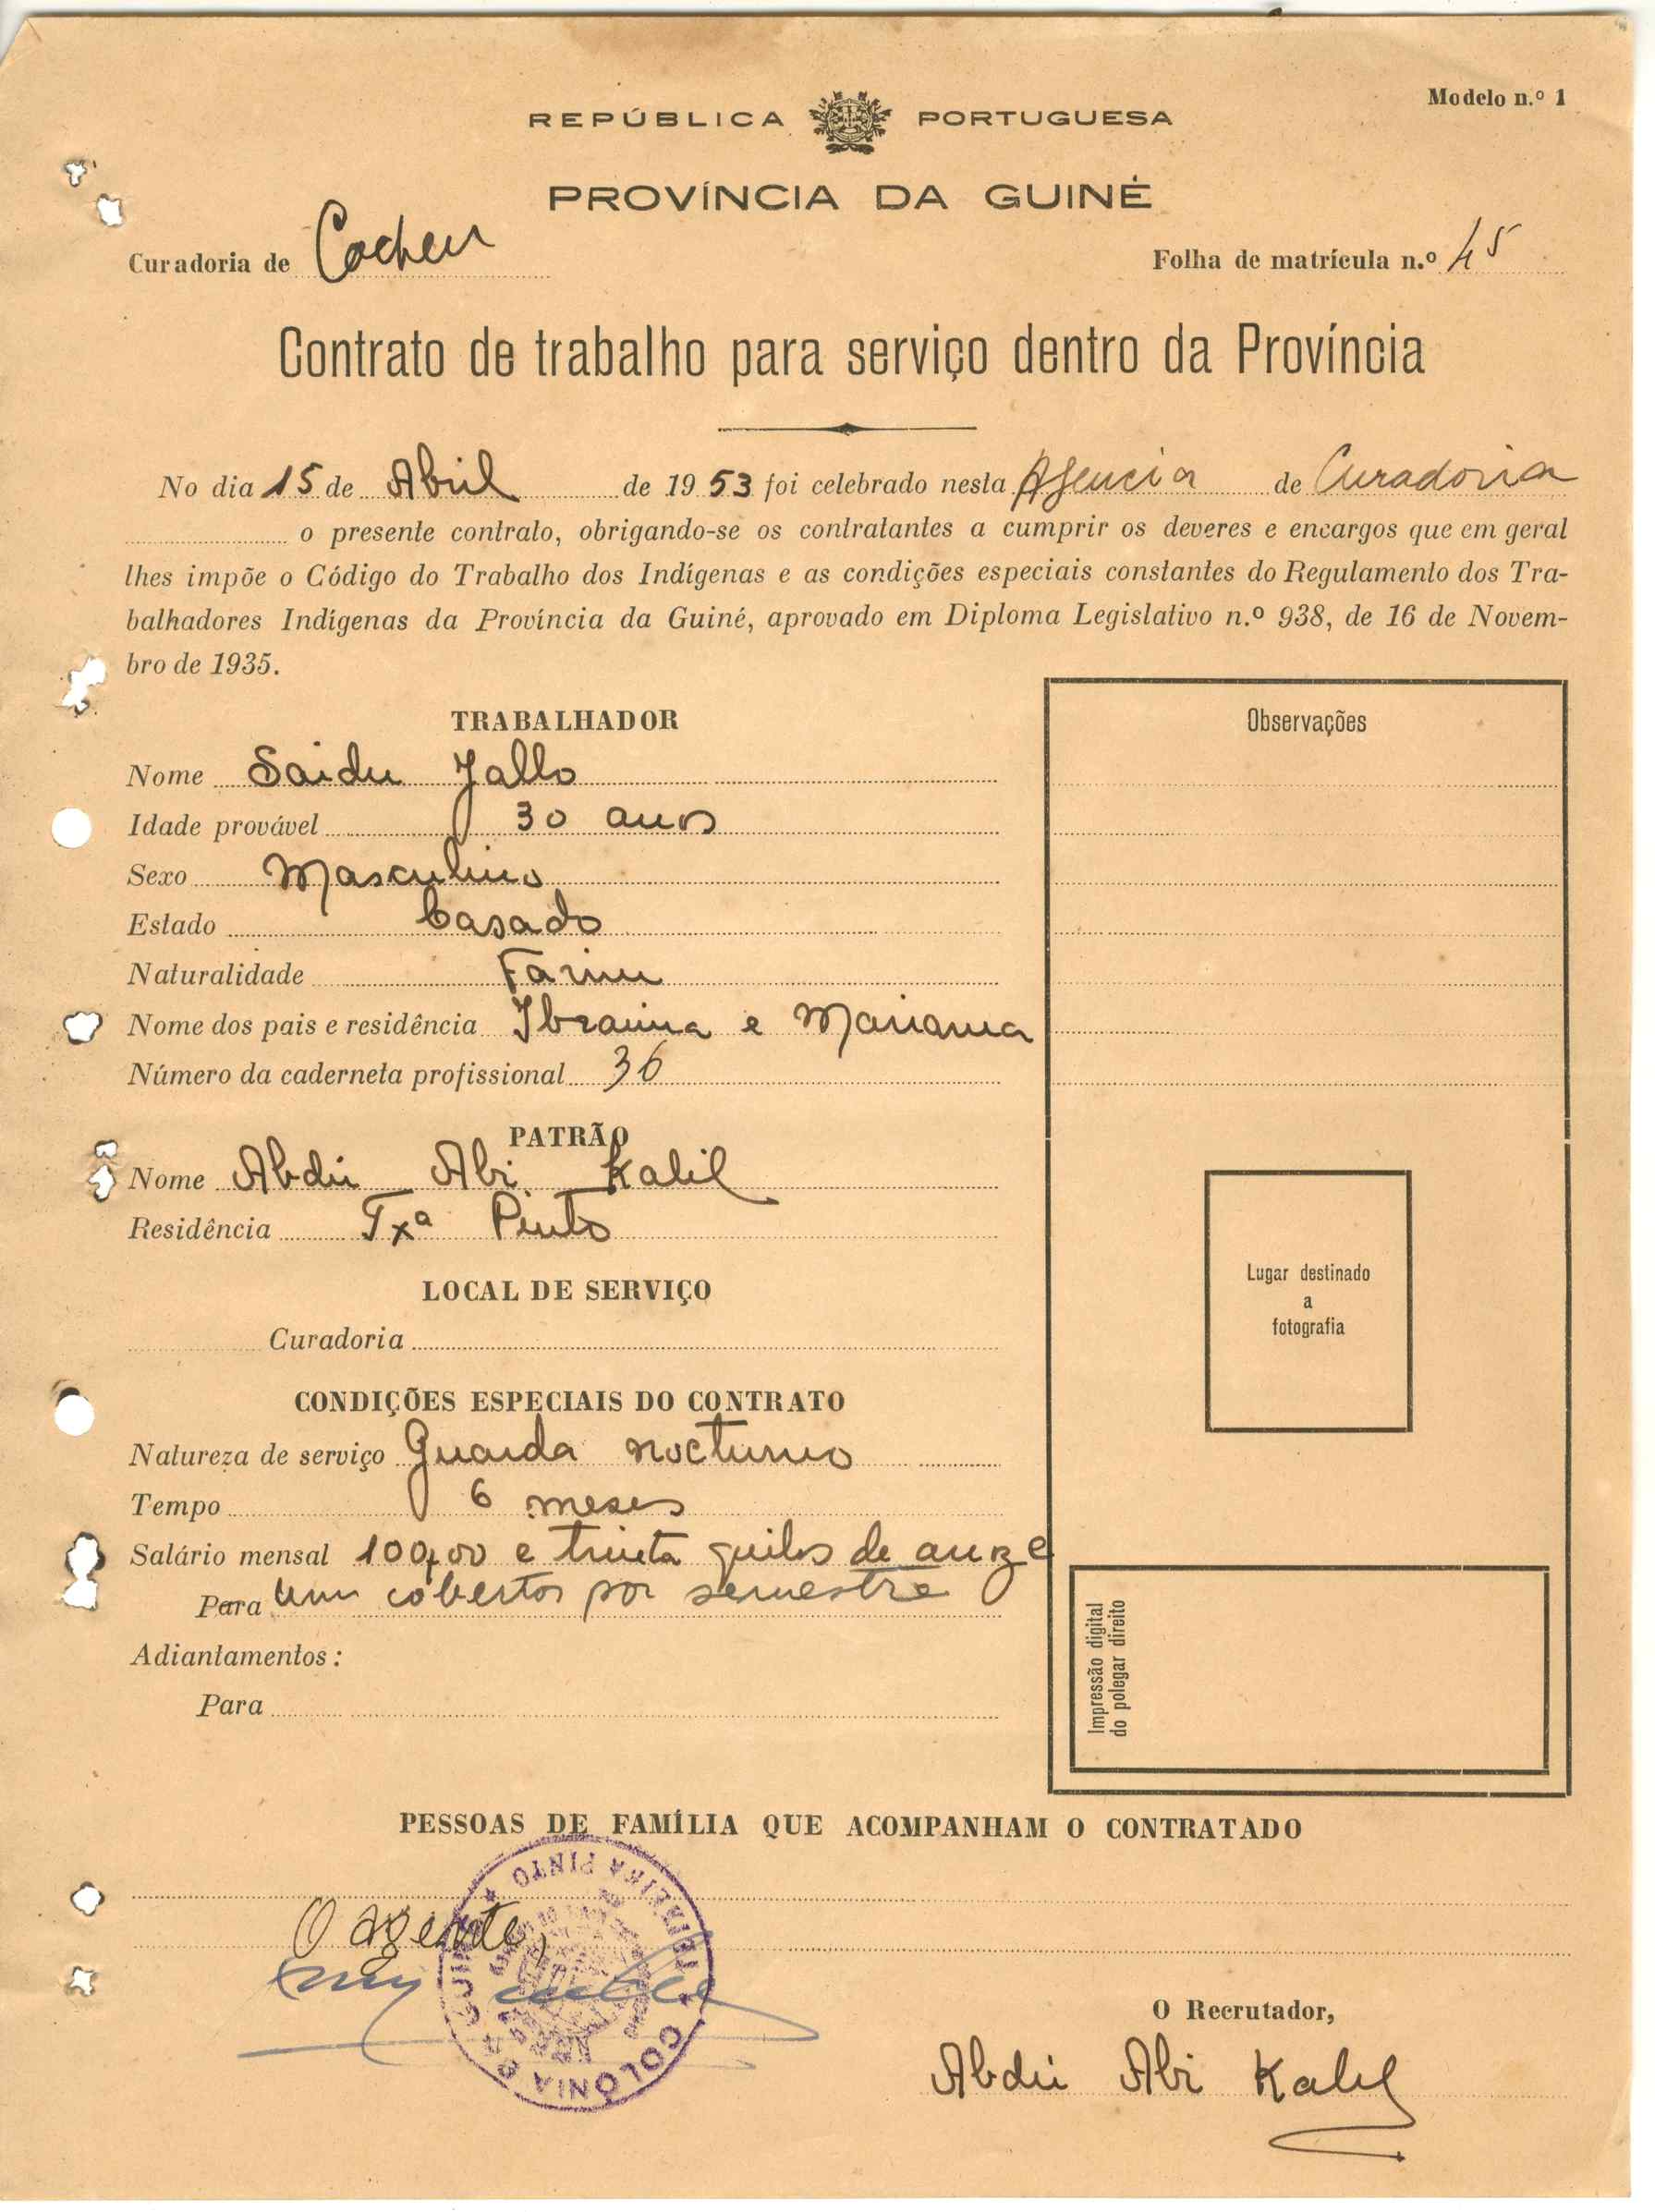 Modelo n.º 1
REPÚBLICA PORTUGUESA
PROVÍNCIA DA GUINÉ
Curadoria de Cacheu
Folha de matrícula n.º 45
Contrato de trabalho para serviço dentro da Província
No dia 15 de Abril de 1953 foi celebrado nesta Agencia de Curadoria
o presente contrato, obrigando-se os contratantes a cumprir os deveres e encargos que em geral
lhes impõe o Código do Trabalho dos Indígenas e as condições especiais constantes do Regulamento dos Tra-
balhadores Indígenas da Província da Guiné, aprovado em Diploma Legislativo n.º 938, de 16 de Novem-
bro de 1935.
TRABALHADOR
Nome Saidu Jallo
Idade provável 30 anos
Sexo Masculino
Estado Casado
Naturalidade Farim
Nome dos pais e residência Ibraima e Mariama
Número da caderneta profissional 36
PATRÃO
Nome Abdú Abi Kalil
Residência Txª Pinto
LOCAL DE SERVIÇO
Curadoria
CONDIÇÕES ESPECIAIS DO CONTRATO
Natureza de serviço Guarda nocturno
Tempo 6 meses
Salário mensal 100$00 e trinta quilos de arroz e
Para um cobertos por semestre
Adiantamentos:
Para
Observações
Lugar destinado
a
fotografia
Impressão digital
do polegar direito
PESSOAS DE FAMÍLIA QUE ACOMPANHAM O CONTRATADO
O agente,
COLÓNIA DA GUINÉ
TEIXEIRA PINTO
O Recrutador,
Abdú Abi Kalil